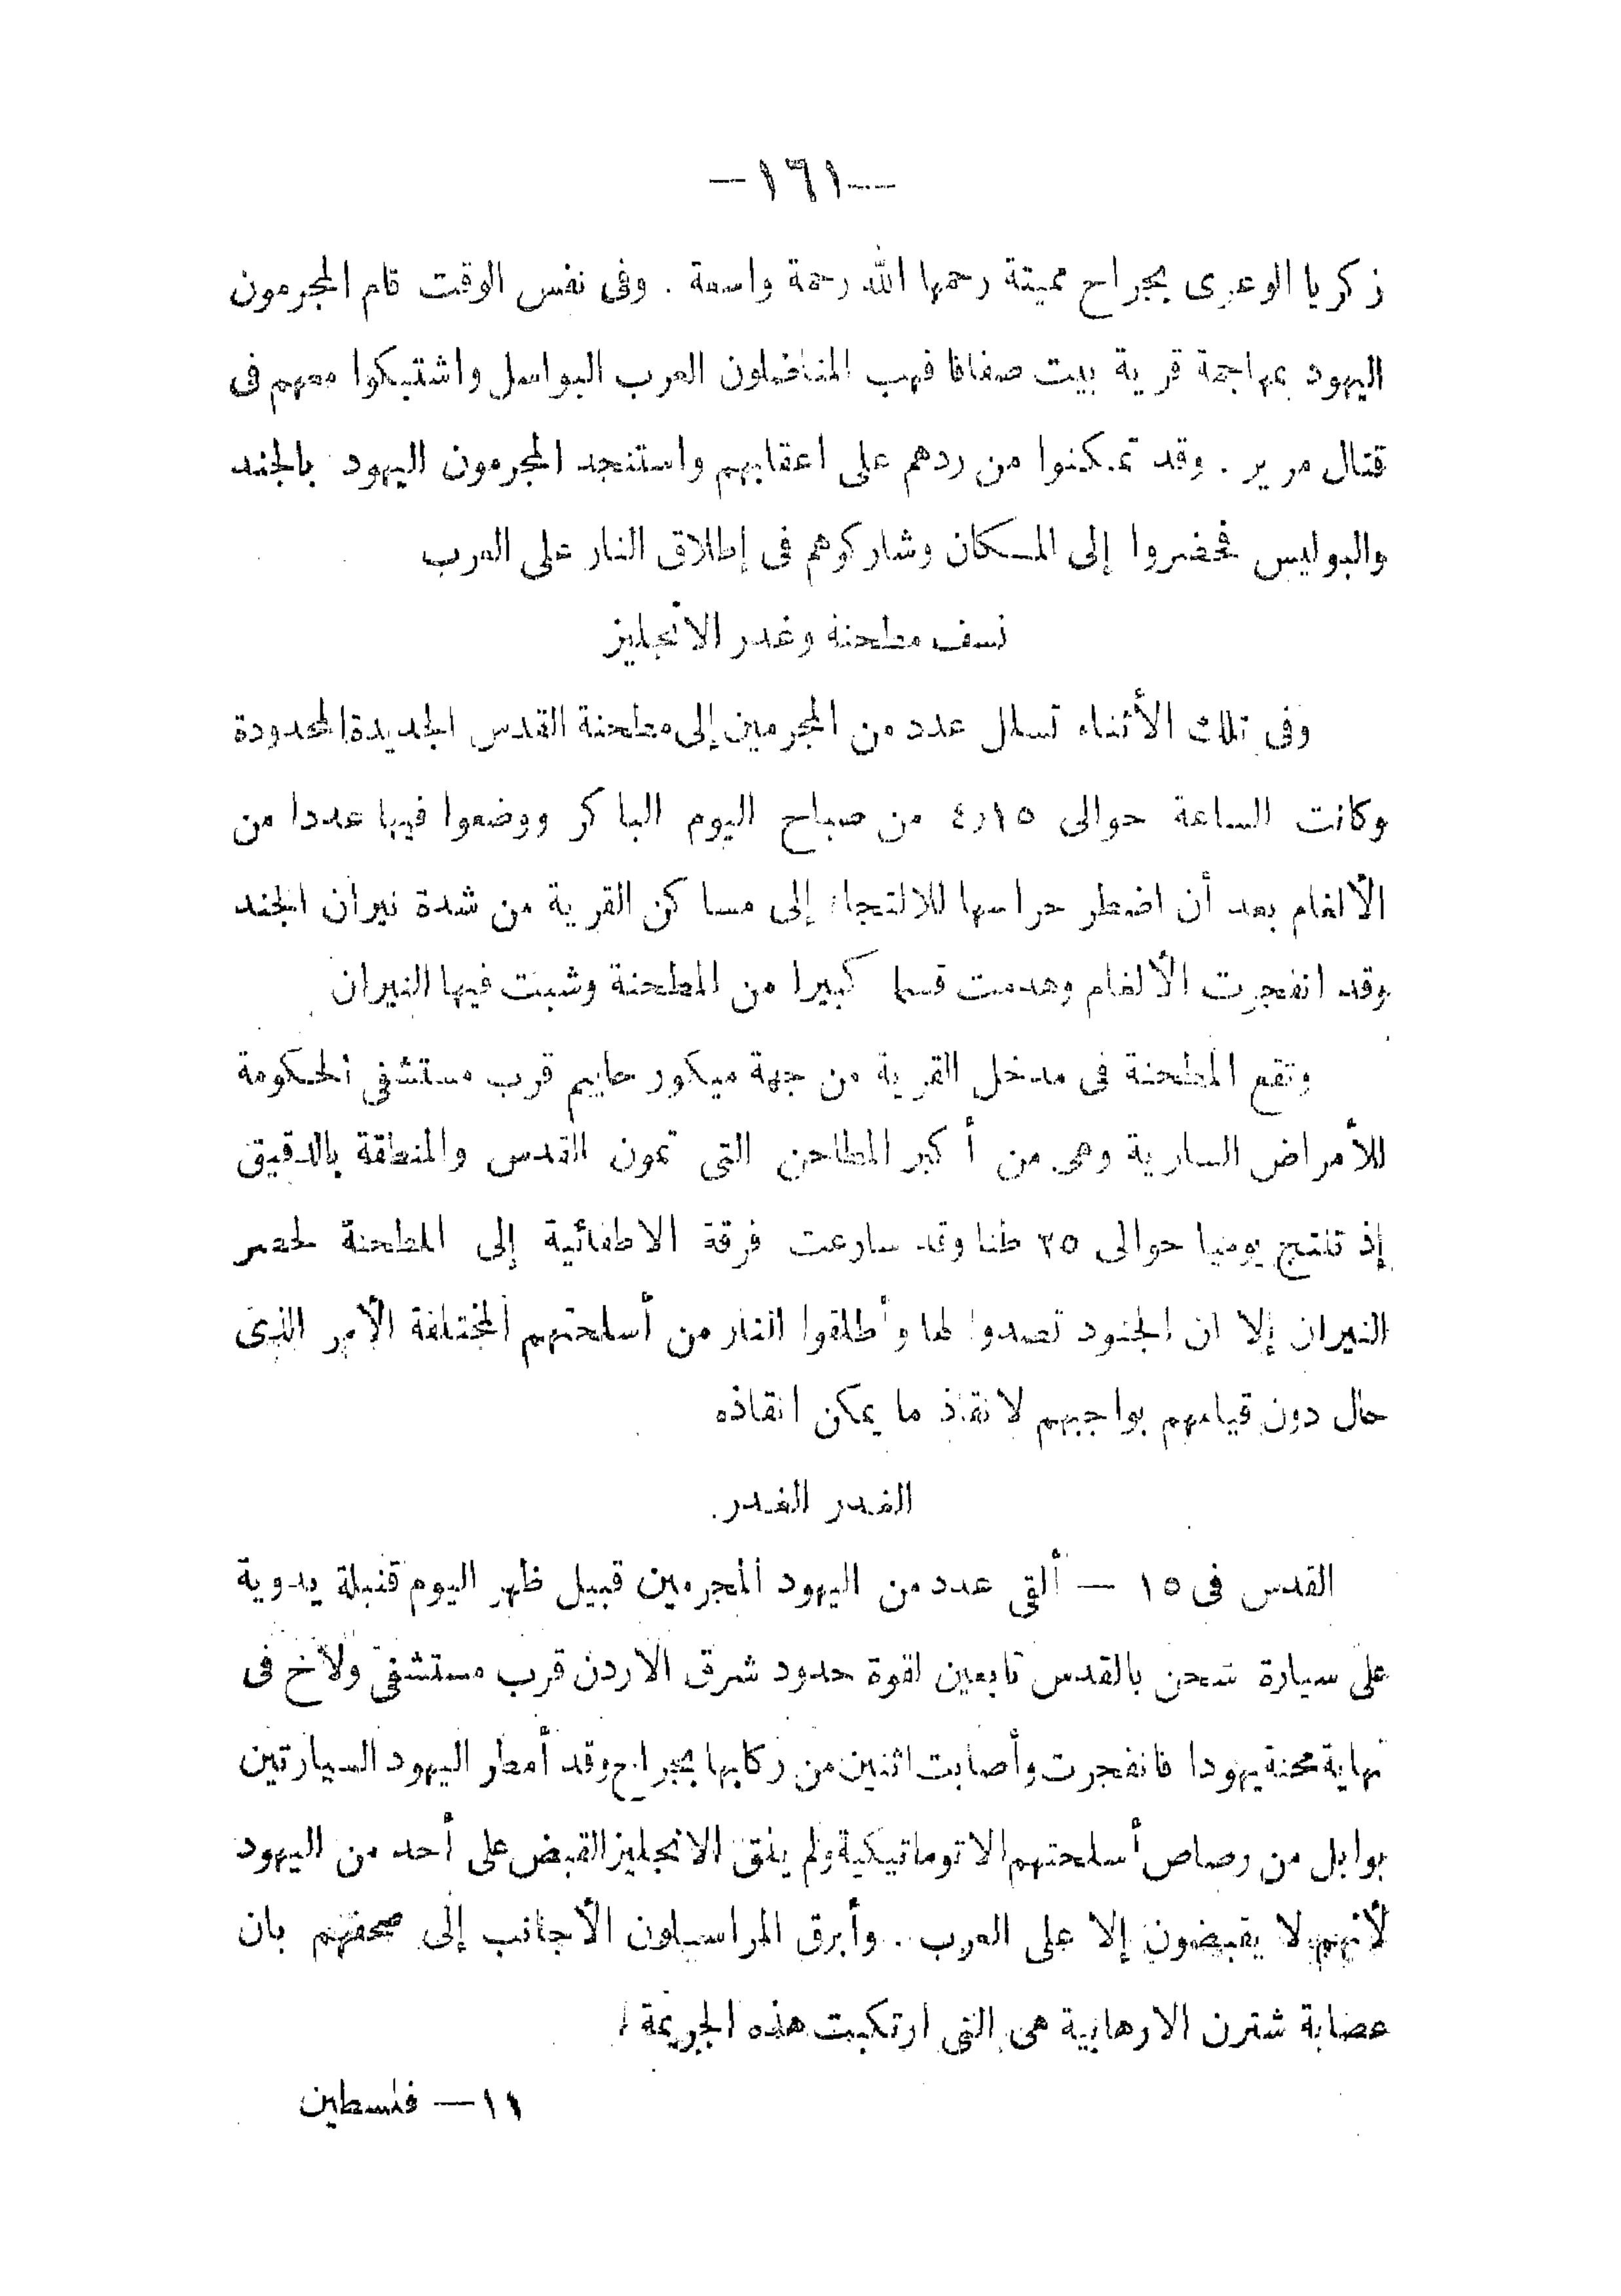 —١٦١—
زكريا الوعرى بجراح مميتة رحمها الله رحمة واسعة . وفى نفس الوقت قام المجرمون
اليهود بمهاجمة قرية بيت صفافا فهب المناضلون العرب البواسل واشتبكوا معهم فى
قتال مرير . وقد تمكنوا من ردهم على اعقابهم واستنجد المجرمون اليهود بالجند
والبوليس فحضروا إلى المكان وشاركوهم فى إطلاق النار على العرب
نسف مطحنة وغدر الانجليز
وفى تلك الأثناء تسلل عدد من المجرمين إلى مطحنة القدس الجديدة المحدودة
وكانت الساعة حوالى ٤٫١٥ من صباح اليوم الباكر ووضعوا فيها عددا من
الألغام بعد أن اضطر حراسها للالتجاء إلى مساكن القرية من شدة نيران الجند
وقد انفجرت الألغام وهدمت قسما كبيرا من المطحنة وشبت فيها النيران
وتقع المطحنة فى مدخل القرية من جهة ميكور حاييم قرب مستشفى الحكومة
للأمراض السارية وهى من أكبر المطاحن التى تمون القدس والمنطقة بالدقيق
إذ تنتج يوميا حوالى ٣٥ طنا وقد سارعت فرقة الاطفائية إلى المطحنة لحصر
النيران إلا ان الجنود تصدوا لها وأطلقوا النار من أسلحتهم المختلفة الأمر الذى
حال دون قيامهم بواجبهم لانقاذ ما يمكن انقاذه
الغدر الغدر
القدس فى ١٥ — ألقى عدد من اليهود المجرمين قبيل ظهر اليوم قنبلة يدوية
على سيارة شحن بالقدس تابعين لقوة حدود شرق الاردن قرب مستشفى ولاخ فى
نهاية محنة يهودا فانفجرت وأصابت اثنين من ركابها بجراح وقد أمطر اليهود السيارتين
بوابل من رصاص أسلحتهم الاتوماتيكية ولم يلق الانجليز القبض على أحد من اليهود
لأنهم لا يقبضون إلا على العرب . وأبرق المراسلون الأجانب إلى صحفهم بان
عصابة شترن الارهابية هى التى ارتكبت هذه الجريمة !
١١ — فلسطين